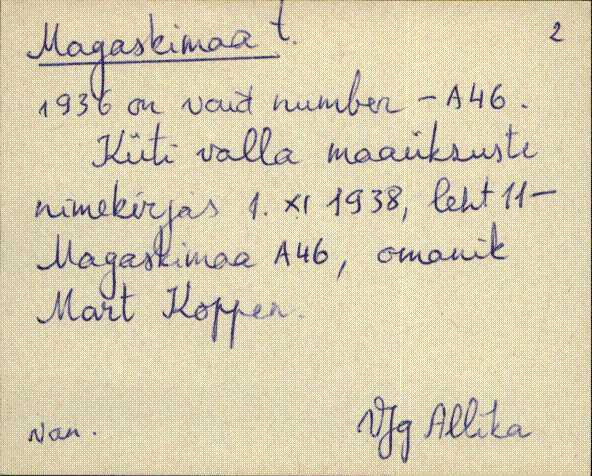 Magaskimaa t. 2
1936 on vaid number - A46.
Küti valla maaüksuste
nimekirjas 1. XI 1938, leht 11 -
Magaskimaa A46, omanik
Mart Koppen.
van. VJg Allika